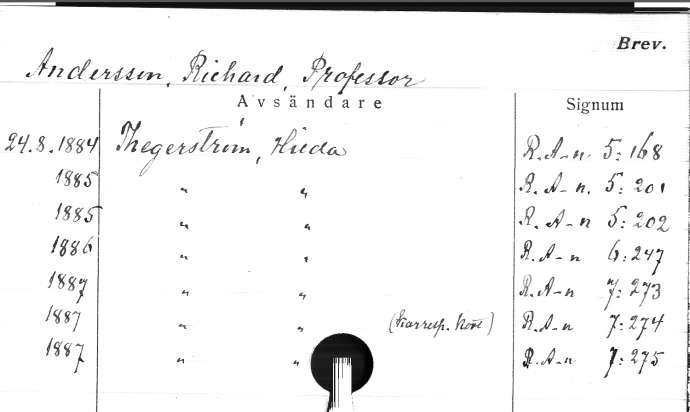 Brev.
Andersson, Richard, Professor
Avsändare Signum
24.8.1884 Thegerström, Hilda R.A-n. 5:168
1885 " " R.A-n. 5:201
1885 " " R.A-n 5:202
1886 " " R.A-n 6:247
1887 " " R.A-n 7:273
1887 " " (Korresp. kort) R.A-n 7:274
1887 " " R.A-n 7:275